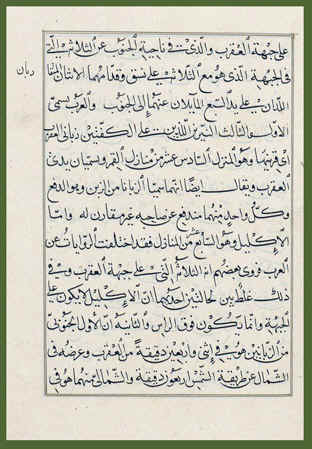 على جبهة العقرب والذى فى ناحية الجنوب عن الثلاثة التى
فى الجبهة الذى هو مع الثلاثة على نسق وقدامهما الاثنان
اللذان على يد السبع المايلان عنها الى الجنوب والعرب يسمى
الاول والثالث النيرين اللذين على الكفتين زبانى العقرب
اى قرنيها وهو المنزل السادس عشر من منازل القمر ويسميان يدى
العقرب ويقال ايضا انهما سميا الزبانا من الزبن وهو الدفع
وكل واحد منهما مندفع عن صاحبه غير مقارن له واما
الاكليل وهو السابع عشر من المنازل فقد اختلفت الروايات عن
العرب فروى بعضهم انه الثلاثة التى على جبهة العقرب وفى
ذلك غلط من احدهما ان الاكليل لا يكون على
الجبهة وانما يكون فوق الراس والثانية ان الاول الجنوبى
من الزبانين هو فى اثنى واربعين دقيقة من العقرب وعرضه فى
الشمال عن طريقة الشمس اربعون دقيقة والشمالى منهما هو فى
زبان